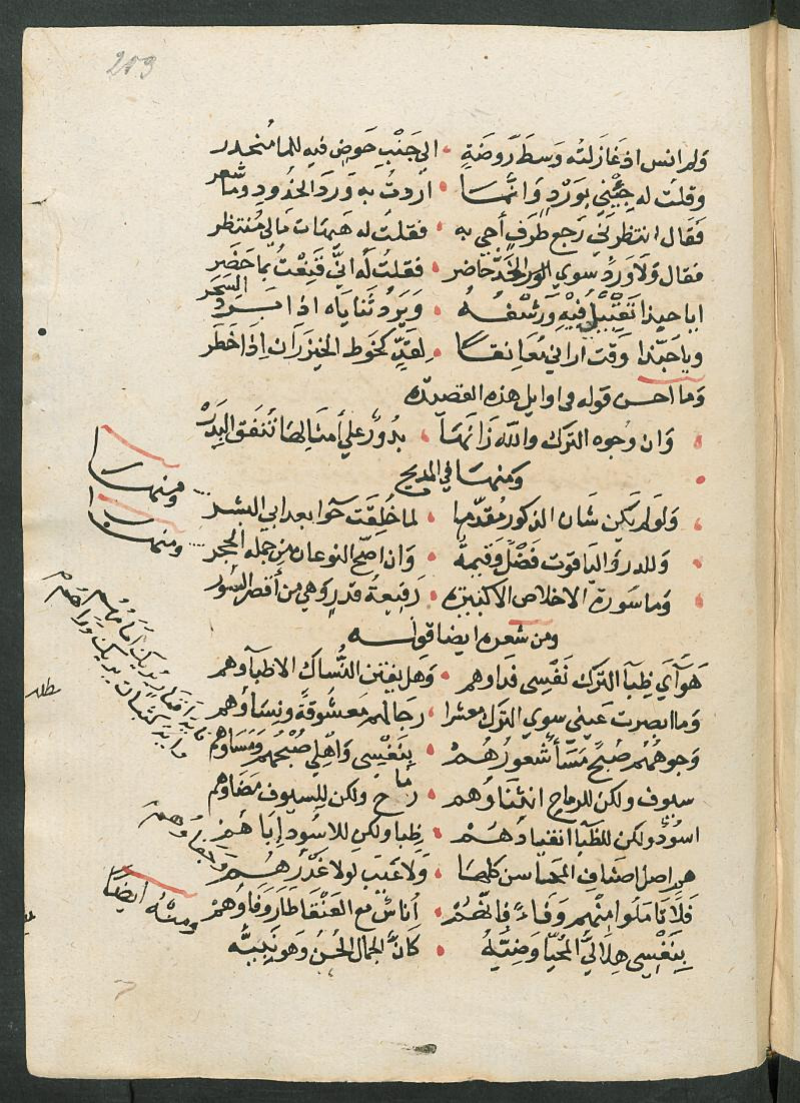 203
ولم انس اذ غازلته وسط روضة • الي جنب حوض فيه للما منحدر
وقلت له جئني بورد وانما • اردت به ورد الخدود وما شعر
فقال انتظرني رجع طرف أجي به • فقلت له هيهات مالي منتظر
فقال ولا ورد سوي الورد الخد حاضر • فقلت له اني قنعت بما حضر
ايا حبذا تقبيل فيه ورشفه • وبرد ثناياه اذا برد السحر
ويا حبذا وقت اراني معانقا • لقد كخوط الخيزران اذا خطر
وما احسن قوله في اوايل هذه القصيده
وان وجوه الترك والله زانها • بدور علي أمثالها تنفق البدر
ومنها في المديح
ولو لم يكن شان الذكور مقدما • لما خلقت حوا بعد ابي البشر
ومنها
وللدر والياقوت فضل وقيمة • وان اصبح النوعان من جمله الحجر
ومنها
وما سورة الاخلاص الا كنيزه • رفيعة قدر وهي من أقصر السور
ومن شعره ايضا قوله
هوآي ظبآ الترك نفسي فداوهم • وهل يفتن النساك الا ظبآوهم
وما ابصرت عيني سوي الترك معشرا • رجالهم معشوقة ونساؤهم
وجوههم صبح مسآ شعورهم • بنفسي واهلي صبحهم ومساوهم
سيوف ولكن للرماح انثناوهم • رماح ولكن للسيوف مضاوهم
اسود ولكن للظبآ انقيادهم • ظبا ولكن للاسود إباهم
هم اصل اصناف المحاسن كلها • ولا عيب لولا غدرهم وجفاوهم
فلا تاملوا منهم وفاءً فانهم • أناس مع العنقا طار وفاوهم
ومنه ايضا
بنفسي هلالي المحيا وضيه • كان الجمال الحسن وهو نبيه